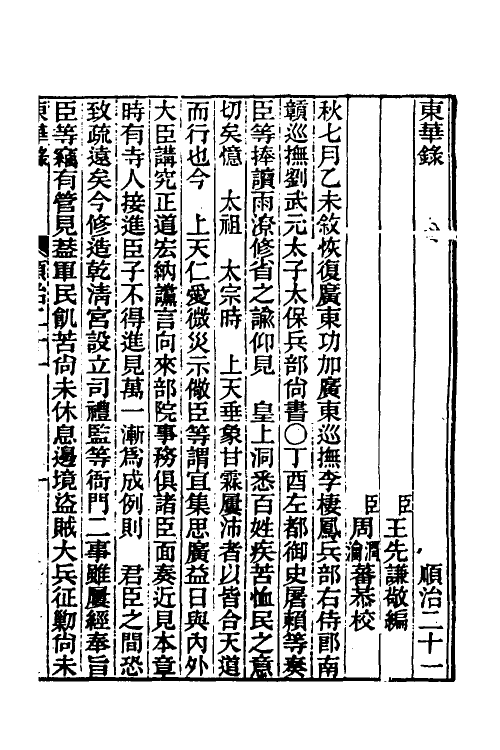 東華錄　順治二十一
臣王先謙敬編
臣周潤蕃瀹蕃恭校
秋七月乙未敘恢復廣東功加廣東巡撫李棲鳳兵部右侍郎南
贛巡撫劉武元太子太保兵部尙書〇丁酉左都御史屠賴等奏
臣等捧讀雨潦修省之諭仰見　皇上洞悉百姓疾苦恤民之意
切矣憶　太祖　太宗時　上天垂象甘霖屢沛者以皆合天道
而行也今　上天仁愛微災示儆臣等謂宜集思廣益日與內外
大臣講究正道宏納讜言向來部院事務俱諸臣面奏近見本章
時有寺人接進臣子不得進見萬一漸爲成例則　君臣之間恐
致疏遠矣今修造乾清宮設立司禮監等衙門二事雖屢經奉旨
臣等竊有管見葢軍民飢苦尙未休息邊境盜賊大兵征勦尙未
東華錄　順治二十一　一